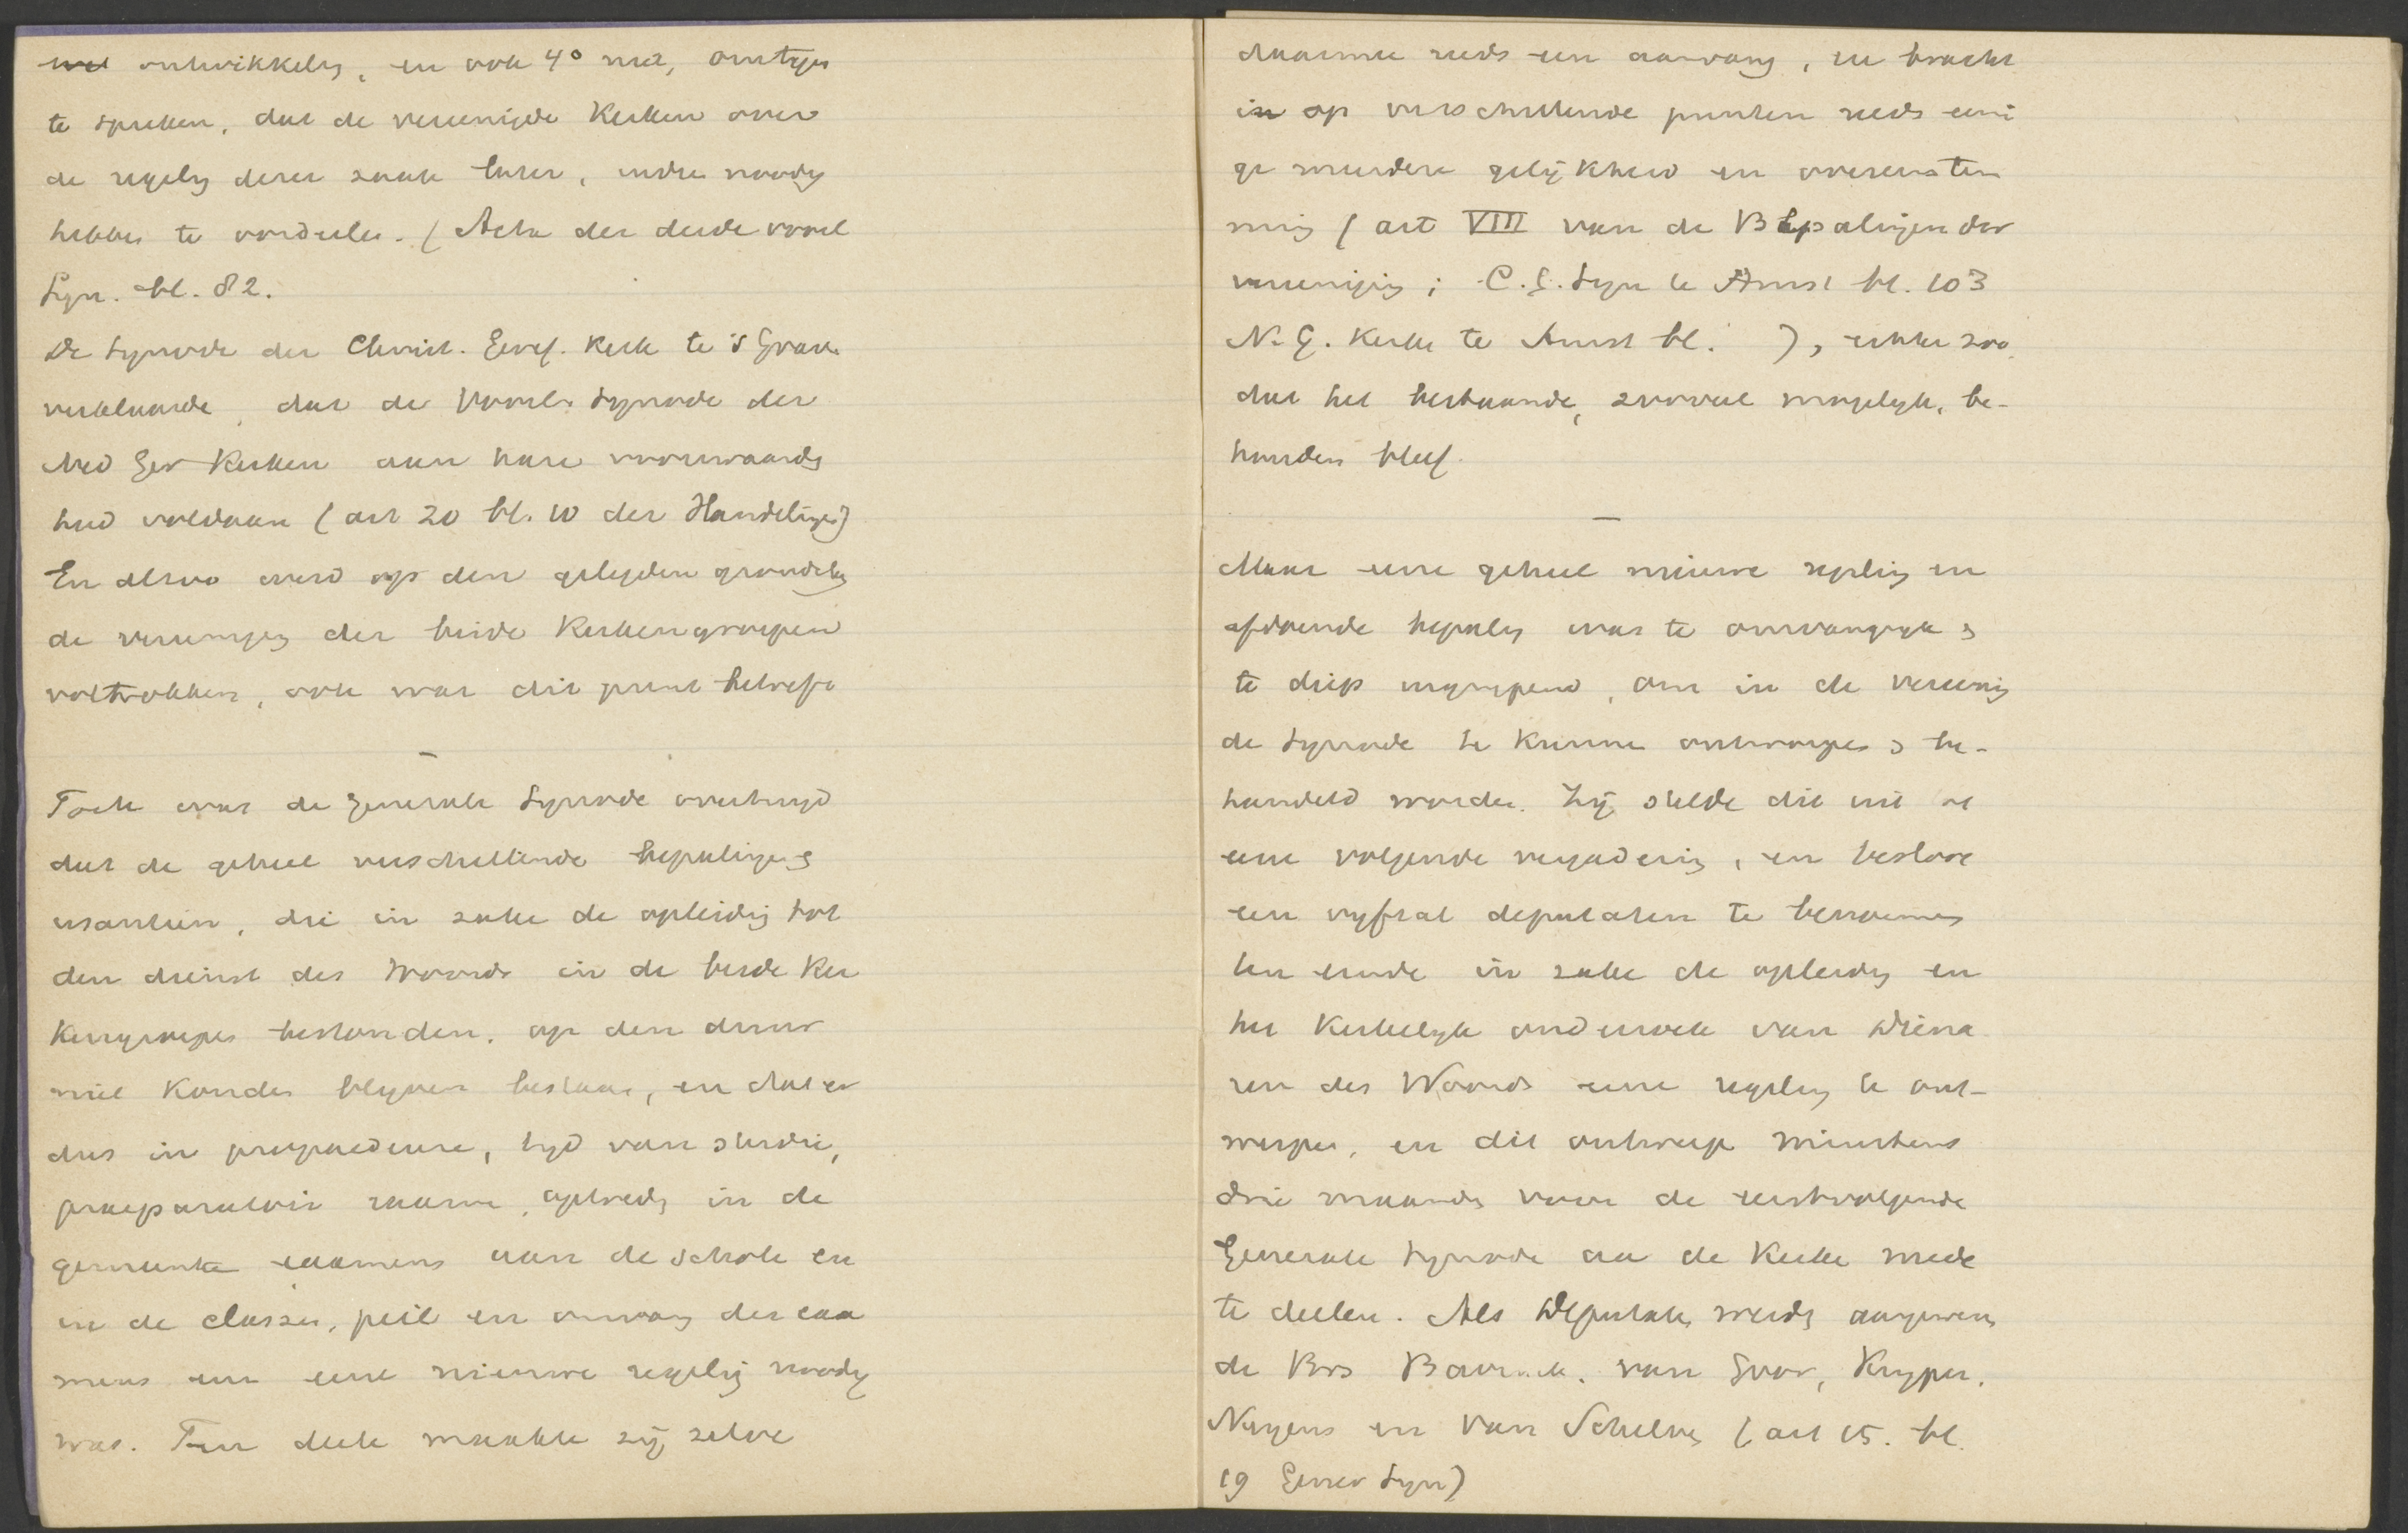 ontwikkeling, en ook 4° niet, om tegen
te spreken, dat de vereenigde Kerken over
de regeling dezer zaak later, indien noodig
hebben te oordeelen. (Acta der derde voorl
Syn. bl. 82.
De Synode der Christ. Geref. Kerk te 's Grav.
verklaarde, dat de Voorl. Synode der
Ned Ger Kerken aan hare voorwaarde
had voldaan (art 20 bl. 10 der Handelingen)
En alzoo werd op den gelegden grondslag
de vereeniging der beide Kerkengroepen
voltrokken, ook wat dit punt betreft
—
Toch was de Generale Synode overtuigd
dat de geheel verschillende bepalingen &
usantien, die in zake de opleiding tot
den dienst des Woords in de beide Ker
kengroepen bestonden, op den duur
niet konden blijven bestaan, en dat er
dus in propaedeuse, tijd van studie,
praeparatoir examen, optreden in de
gemeente examens aan de School en
in de classes, peil en omvang der exa
mens enz eene nieuwe regeling noodig
was. Ten deele maakte zij zelve
daarmee reeds een aanvang, en bracht
in op verschillende punten reeds eeni
ge meerdere gelijkheid en overeenstem
ming (art VIII van de Bepalingen der
vereeniging; C. G. Syn te Amst bl. 103
N. G. Kerken te Amst bl. ), echter zoo
dat het bestaande, zooveel mogelijk, be-
houden bleef.
—
Maar eene geheel nieuwe regeling en
afdoende bepaling was te omvangrijk &
te diep ingrijpend, om in de vereenig
de Synode te kunnen ontworpen & be-
handeld worden. Zij stelde dit uit tot
eene volgende vergadering, en besloot
een vijftal deputaten te benoemen
ten einde in zake de opleiding en
het Kerkelijk onderzoek van Diena
ren des Woords eene regeling te ont-
werpen, en dit ontwerp minstens
drie maanden voor de eerstvolgende
Generale Synode aan de Kerken mede
te deelen. Als Deputaten werden aangewezen
de Brs Bavinck, van Goor, Kuyper,
Noordtzij en Van Schelven (art 15. bl.
19 Gener Syn)